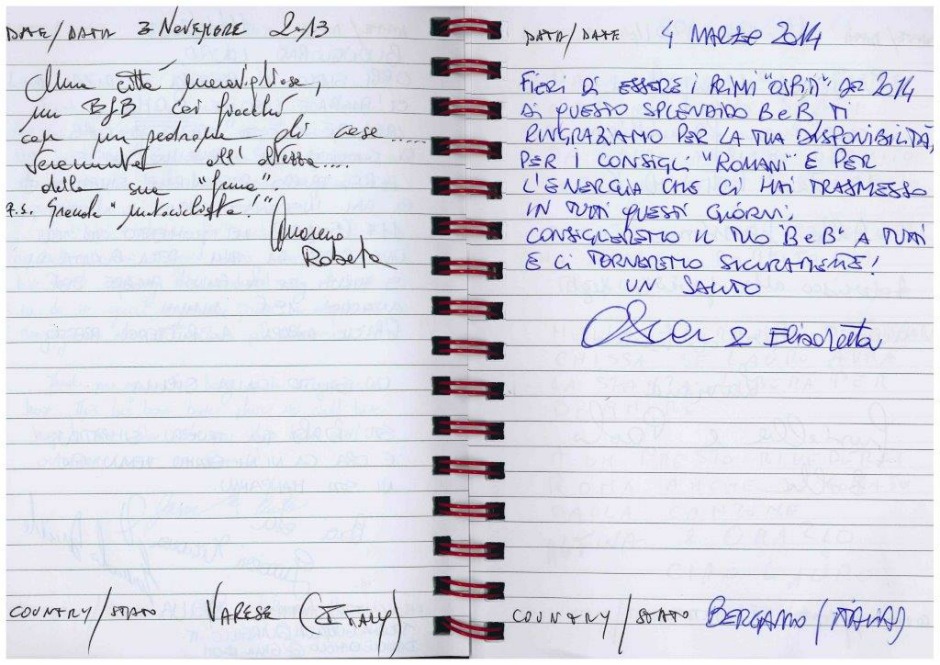 DATE/DATA 3 NOVEMBRE 2013
Una città meravigliosa,
un B&B coi fiocchi
con un padrone di casa .....
all'altezza....
della sua "fama".
P.S. Grande "motociclista!"
Moreno
Roberta
COUNTRY/STATO VARESE (ITALY)
DATA/DATE 4 MARZO 2014
FIERI DI ESSERE I PRIMI "OSPITI" DEL 2014
DI QUESTO SPLENDIDO BeB TI
RINGRAZIAMO PER LA TUA DISPONIBILITÀ,
PER I CONSIGLI "ROMANI" E PER
L'ENERGIA CHE CI HAI TRASMESSO
IN TUTTI QUESTI GIORNI,
CONSIGLIEREMO IL TUO "BeB" A TUTTI
E CI TORNEREMO SICURAMENTE!
UN SALUTO
Oscar & Elisabetta
COUNTRY/STATO BERGAMO (ITALIA)